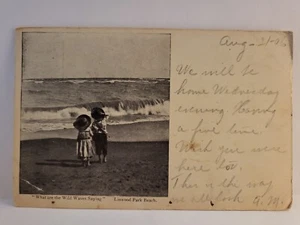 Aug - 21-06
We will be
home Wednesday
evening Having
a fine time
Wish you were
here too.
This is the way
we all look A. M.
"What are the Wild Waves Saying." Linwood Park Beach.